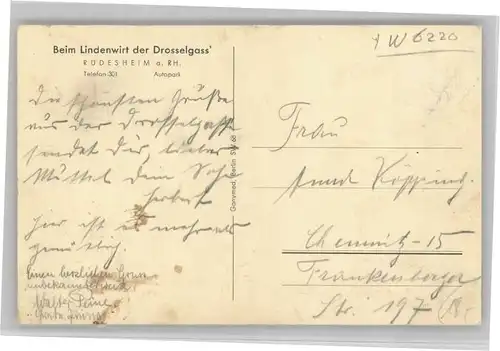 Beim Lindenwirt der Drosselgass'
RÜDESHEIM a. RH.
Telefon 301 Autopark
W 6220
Die schönsten Grüße
aus der Drosselgasse
sendet Dir, liebes
Muttel dein Sohn
Herbert
hier ist es mehr als
gemütlich.
Einen herzlichen Gruss
unbekannterweise
Walter
Ganymed, Berlin SW 68
Frau
Köpping.
Chemnitz-15
Frankenberger
Str. 197